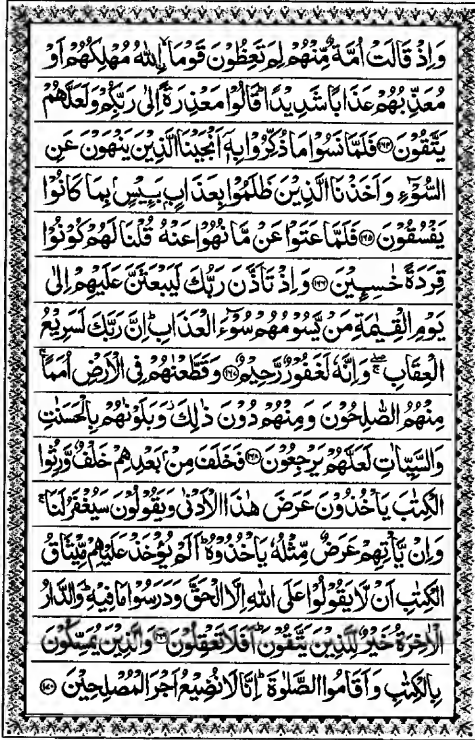 وَاِذْ قَالَتْ اُمَّةٌ مِّنْهُمْ لِمَ تَعِظُوْنَ قَوْمَا ۙ اۨللّٰهُ مُهْلِكُهُمْ اَوْ
مُعَذِّبُهُمْ عَذَابًا شَدِيْدًا ؕ قَالُوْا مَعْذِرَةً اِلٰى رَبِّكُمْ وَلَعَلَّهُمْ
يَتَّقُوْنَ ۝۱۶۴ فَلَمَّا نَسُوْا مَا ذُكِّرُوْا بِهٖۤ اَنْجَيْنَا الَّذِيْنَ يَنْهَوْنَ عَنِ
السُّوْٓءِ وَاَخَذْنَا الَّذِيْنَ ظَلَمُوْا بِعَذَابٍۭ بَـِٕيْسٍۭ بِمَا كَانُوْا
يَفْسُقُوْنَ ۝۱۶۵ فَلَمَّا عَتَوْا عَنْ مَّا نُهُوْا عَنْهُ قُلْنَا لَهُمْ كُوْنُوْا
قِرَدَةً خٰسِـِٕيْنَ ۝۱۶۶ وَاِذْ تَاَذَّنَ رَبُّكَ لَيَبْعَثَنَّ عَلَيْهِمْ اِلٰى
يَوْمِ الْقِيٰمَةِ مَنْ يَّسُوْمُهُمْ سُوْٓءَ الْعَذَابِ ؕ اِنَّ رَبَّكَ لَسَرِيْعُ
الْعِقَابِ ۖۚ وَاِنَّهٗ لَغَفُوْرٌ رَّحِيْمٌ ۝۱۶۷ وَقَطَّعْنٰهُمْ فِى الْاَرْضِ اُمَمًا ۚ
مِنْهُمُ الصّٰلِحُوْنَ وَمِنْهُمْ دُوْنَ ذٰلِكَ ؗ وَبَلَوْنٰهُمْ بِالْحَسَنٰتِ
وَالسَّيِّاٰتِ لَعَلَّهُمْ يَرْجِعُوْنَ ۝۱۶۸ فَخَلَفَ مِنْۢ بَعْدِهِمْ خَلْفٌ وَّرِثُوا
الْكِتٰبَ يَاْخُذُوْنَ عَرَضَ هٰذَا الْاَدْنٰى وَيَقُوْلُوْنَ سَيُغْفَرُ لَنَا ۚ
وَاِنْ يَّاْتِهِمْ عَرَضٌ مِّثْلُهٗ يَاْخُذُوْهُ ؕ اَلَمْ يُؤْخَذْ عَلَيْهِمْ مِّيْثَاقُ
الْكِتٰبِ اَنْ لَّا يَقُوْلُوْا عَلَى اللّٰهِ اِلَّا الْحَقَّ وَدَرَسُوْا مَا فِيْهِ ؕ وَالدَّارُ
الْاٰخِرَةُ خَيْرٌ لِّلَّذِيْنَ يَتَّقُوْنَ ؕ اَفَلَا تَعْقِلُوْنَ ۝۱۶۹ وَالَّذِيْنَ يُمَسِّكُوْنَ
بِالْكِتٰبِ وَاَقَامُوا الصَّلٰوةَ ؕ اِنَّا لَا نُضِيْعُ اَجْرَ الْمُصْلِحِيْنَ ۝۱۷۰